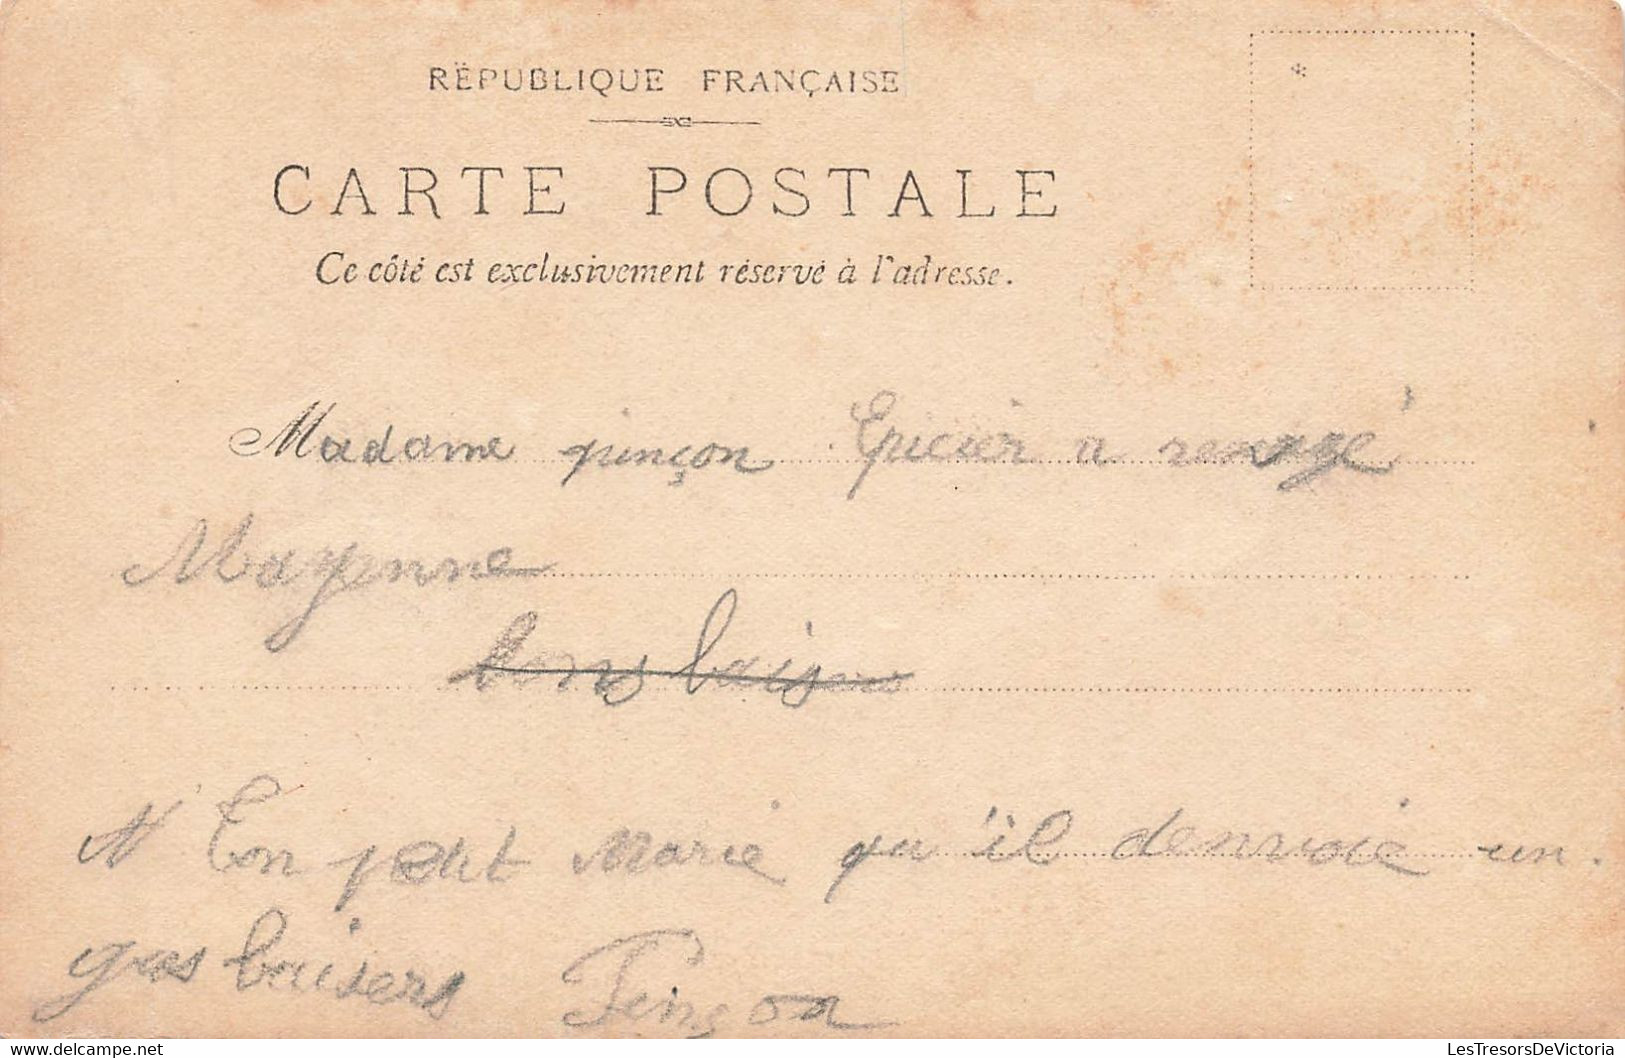 RÉPUBLIQUE FRANÇAISE
CARTE POSTALE
Ce côté est exclusivement réservé à l'adresse.
*
Madame pinçon Epicier a
Mayenne
baisers
Ton petit Marie qu'il denvoie un
gros baisers Pinçon
LesTresorsDeVictoria